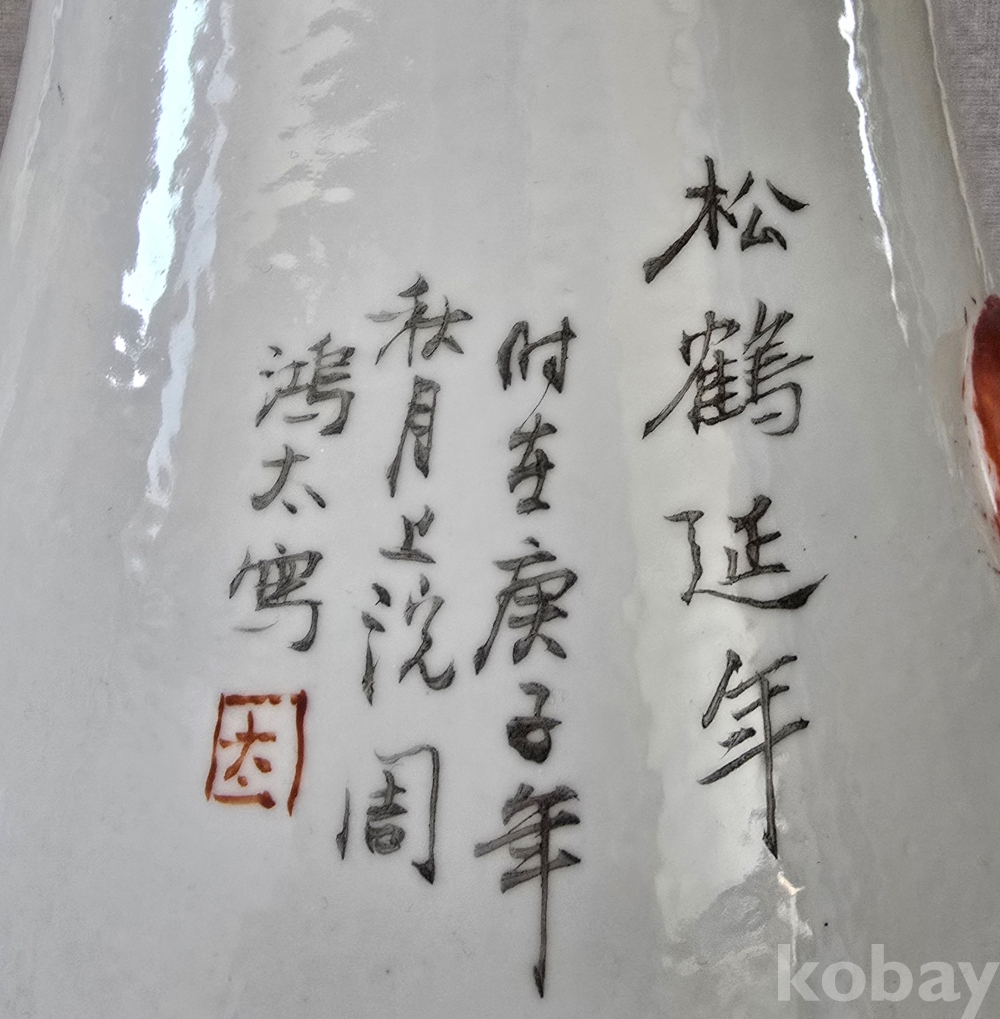 松鶴延年
时在庚子年
秋月上浣周
鴻太寫
太
kobay